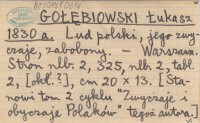 GOŁĘBIOWSKI Łukasz
1830 a. Lud polski, jego zwy-
czaje, zabobony. – Warszawa.
Stron nlb. 2, 325, nlb. 2, tabl.
2, [okł.?], cm 20 x 13. [Sta-
nowi tom 2 cyklu "Zwyczaje i
obyczaje Polaków" tegoż autora.]